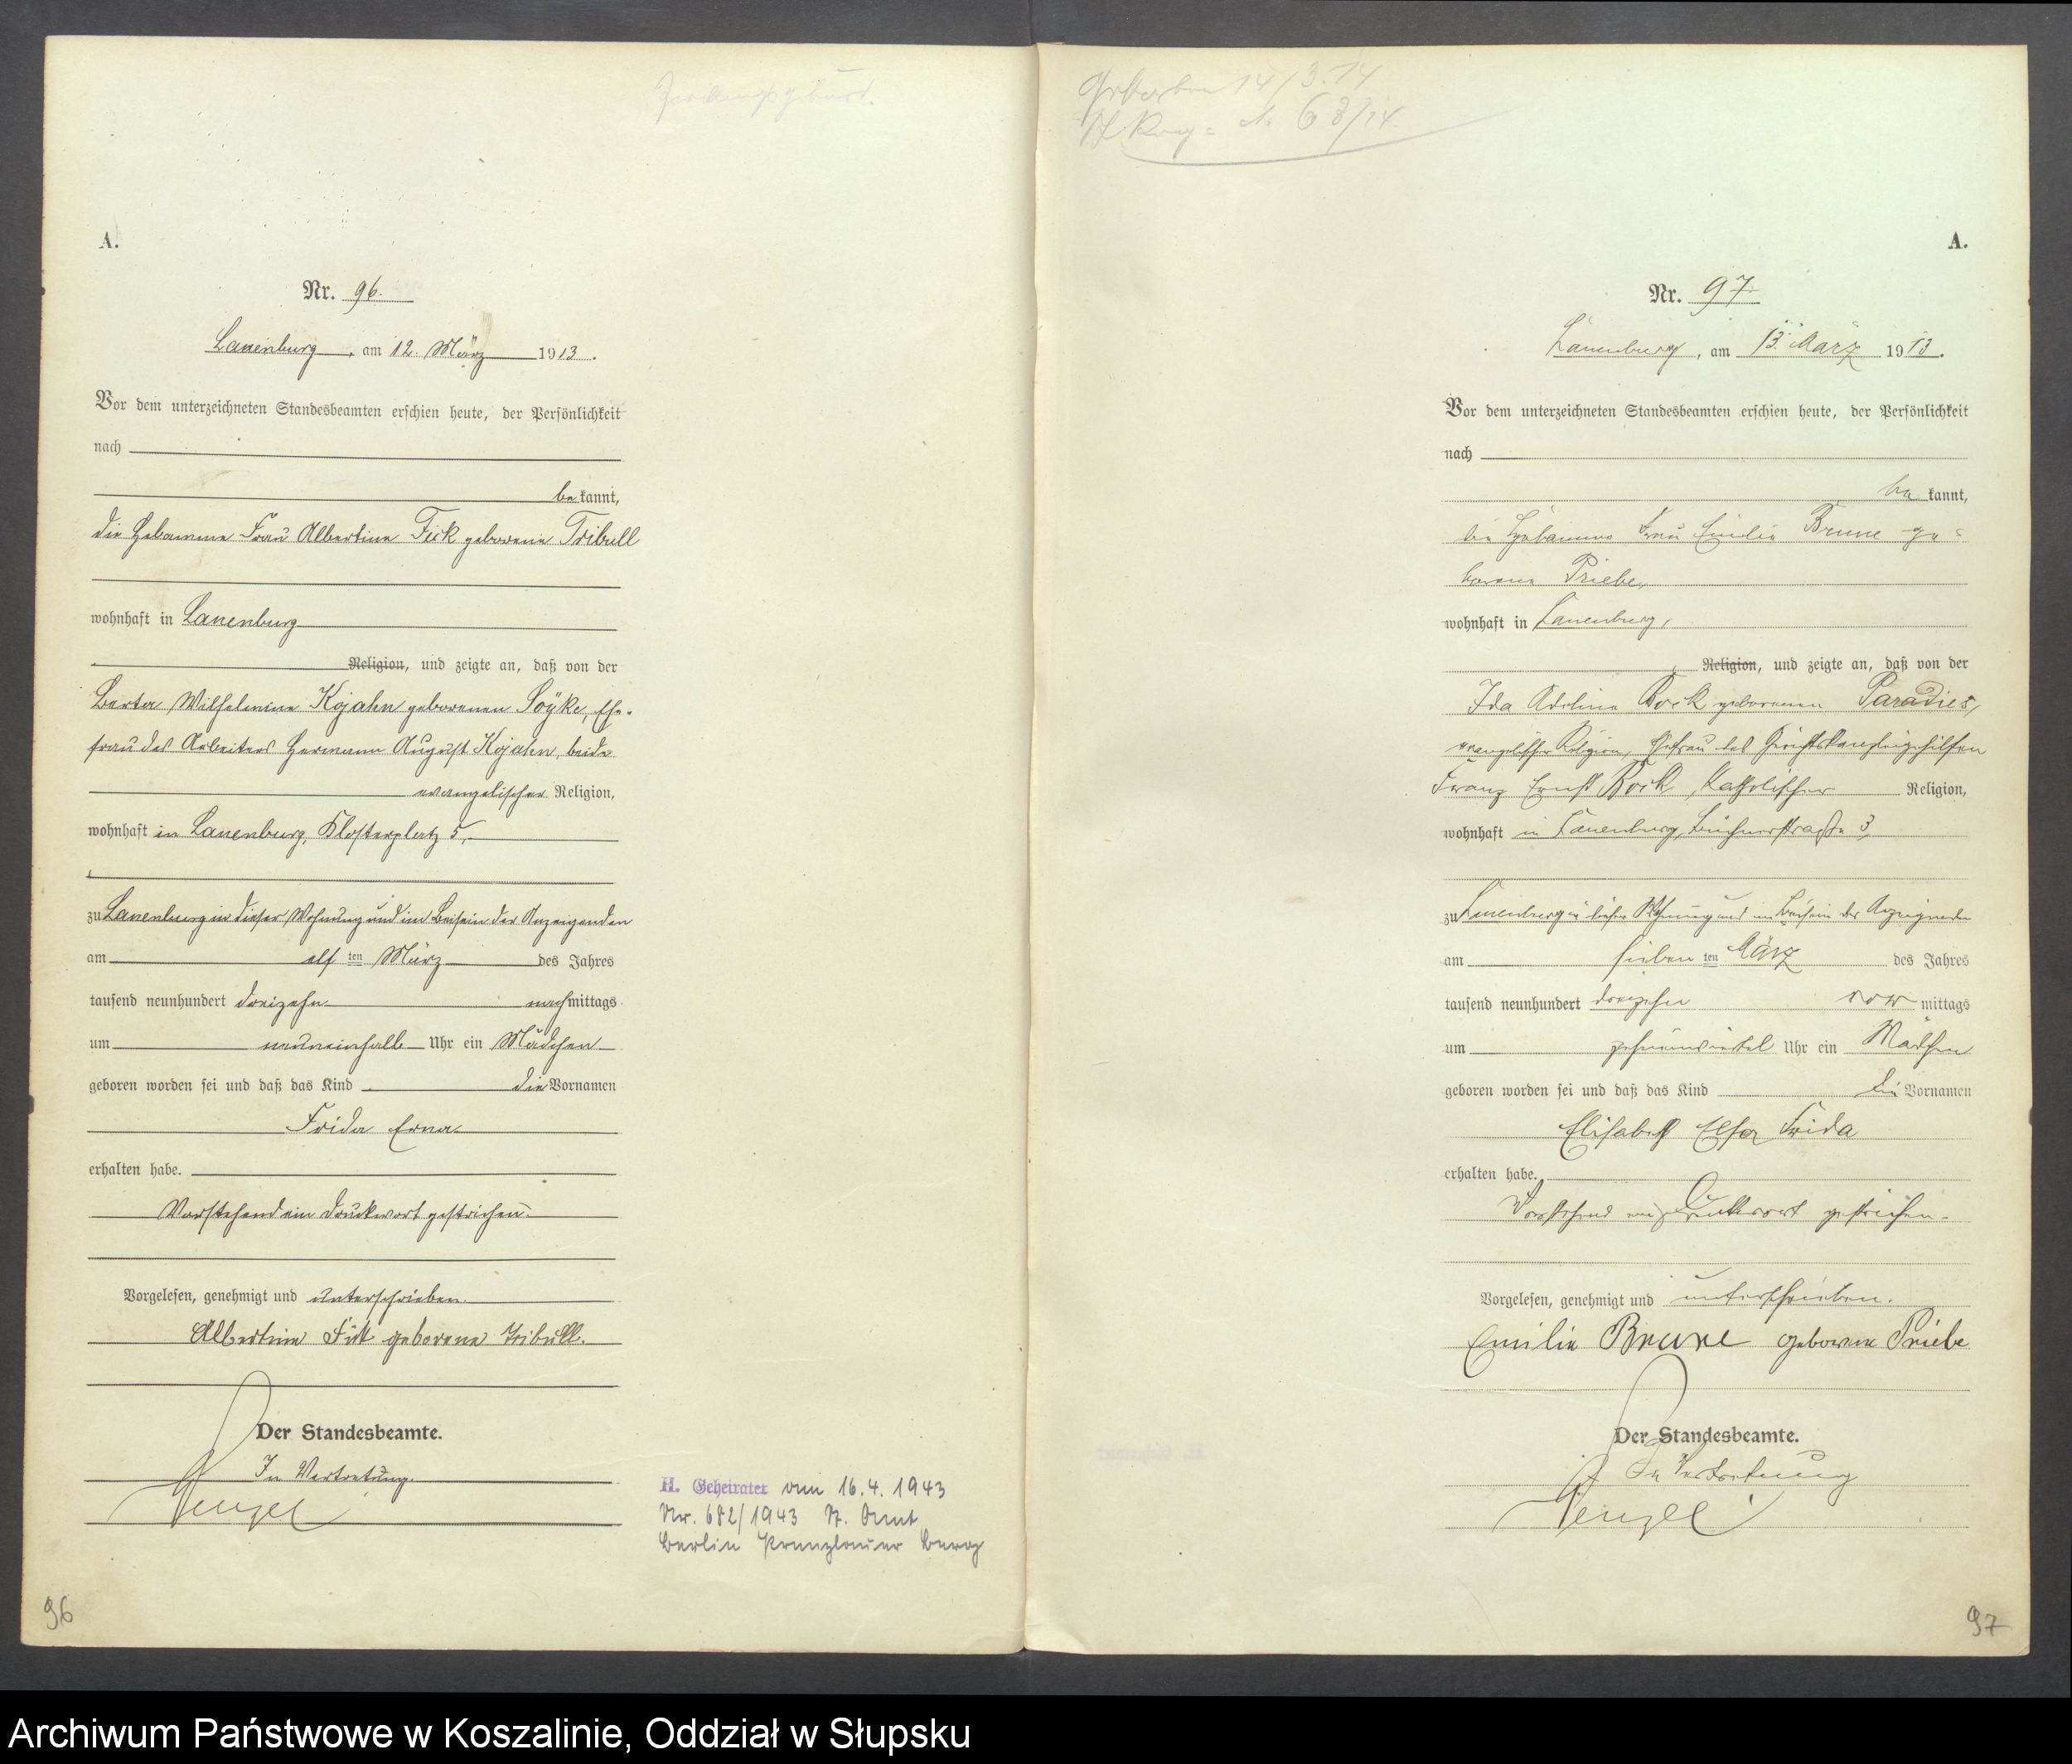 Zwillingsgeburt.
A.
Nr. 96.
Lauenburg, am 12. März 1913.
Vor dem unterzeichneten Standesbeamten erschien heute, der Persönlichkeit
nach
bekannt,
die Hebamme Frau Albertine Fick geborene Tribull
wohnhaft in Lauenburg
Religion, und zeigte an, daß von der
Berta Wilhelmine Kojahn geborenen Söyke, Ehe-
frau des Arbeiters Hermann August Kojahn, beide
evangelischer Religion,
wohnhaft in Lauenburg, Klosterplatz 5,
zu Lauenburg in dieser Wohnung und im Beisein der Anzeigenden
am elf ten März des Jahres
tausend neunhundert dreizehn nachmittags
um neuneinhalb Uhr ein Mädchen
geboren worden sei und daß das Kind die Vornamen
Frida Erna
erhalten habe.
Vorstehend ein Druckwort gestrichen.
Vorgelesen, genehmigt und unterschrieben.
Albertine Fick geborene Tribull.
Der Standesbeamte.
In Vertretung.
H. Geheiratet am 16.4.1943
Nr. 682/1943 St. Amt
Berlin Prenzlauer Berg
96
Gestorben 14/3.14
No 68/14.
A.
Nr. 97
Lauenburg, am 13. März 1913.
Vor dem unterzeichneten Standesbeamten erschien heute, der Persönlichkeit
nach
bekannt,
die Hebamme Frau Emilie Brune ge=
borene Priebe,
wohnhaft in Lauenburg,
Religion, und zeigte an, daß von der
Ida Adeline Bock geborenen Paradies,
evangelischer Religion, Ehefrau des Gerichtskanzleigehilfen
Franz Ernst Bock, katholischer Religion,
wohnhaft in Lauenburg, 3,
zu Lauenburg in dieser Wohnung und im Beisein der Anzeigenden
am sieben ten März des Jahres
tausend neunhundert dreizehn vormittags
um Uhr ein Mädchen
geboren worden sei und daß das Kind die Vornamen
Elisabeth Elsa Frida
erhalten habe.
Vorstehend ein Druckwort gestrichen.
Vorgelesen, genehmigt und unterschrieben.
Emilie Brune geborene Priebe
Der Standesbeamte.
In Vertretung
97
Archiwum Państwowe w Koszalinie, Oddział w Słupsku